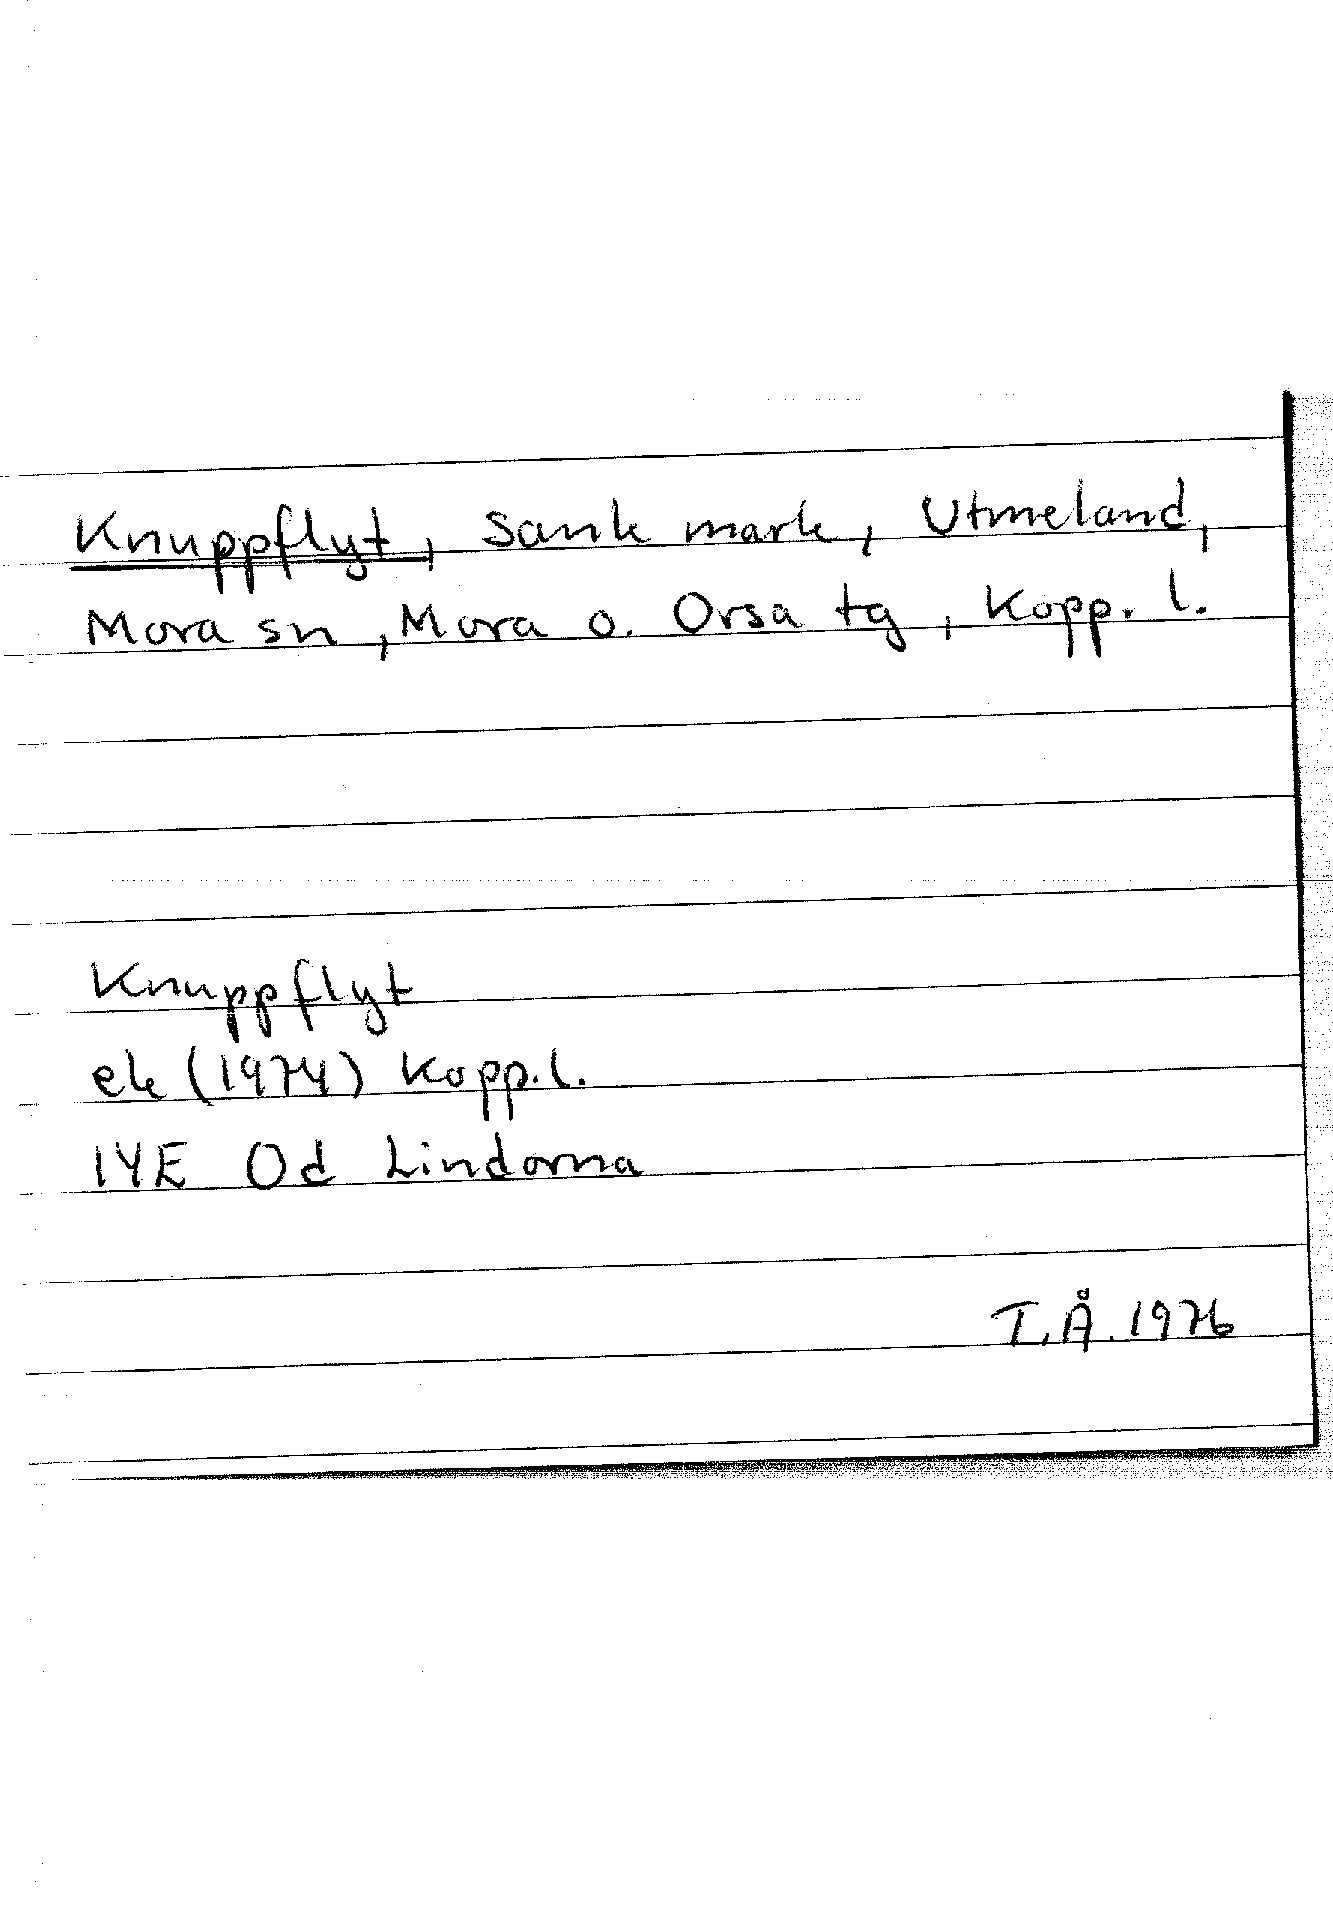 Knuppflyt, Sank mark, Utmeland,
Mora sn, Mora o. Orsa tg, Kopp. l.
Knuppflyt
ek (1974) Kopp.l.
14E 0d Lindorna
T.Å. 1976